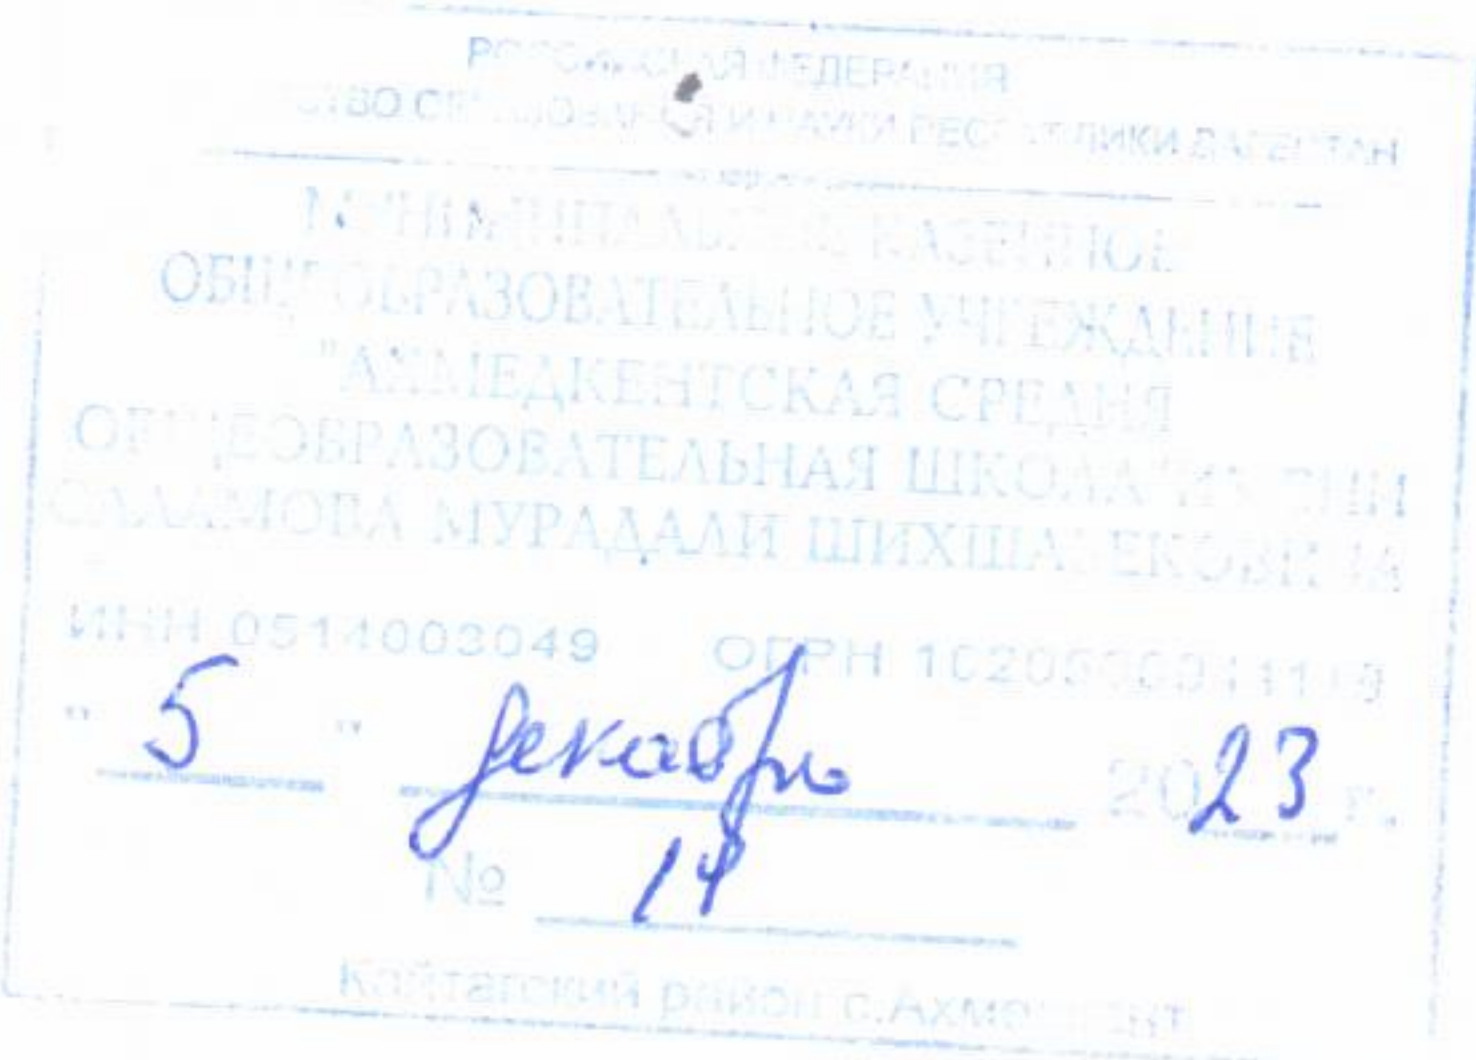 РОССИЙСКАЯ ФЕДЕРАЦИЯ
ОБРАЗОВАНИЯ И НАУКИ РЕСПУБЛИКИ ДАГЕСТАН
МУНИЦИПАЛЬНОЕ КАЗЕННОЕ
ОБЩЕОБРАЗОВАТЕЛЬНОЕ УЧРЕЖДЕНИЕ
"АХМЕДКЕНТСКАЯ СРЕДНЯЯ
ОБЩЕОБРАЗОВАТЕЛЬНАЯ ШКОЛА" ИМЕНИ
МУРАДАЛИ
ИНН 0514003049 ОГРН
" 5 " декабрь 2023 г.
№ 14
Кайтагский район с.Ахмедкент